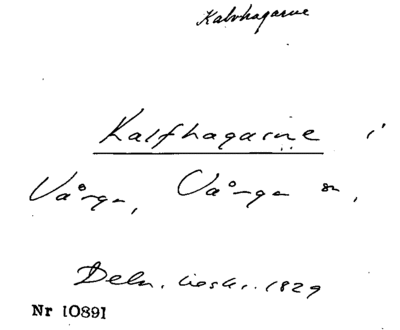 Kalvhagarne
Kalfhagarne i
Vånga, Vånga sn,
Deln. beskr. 1829
Nr 10891